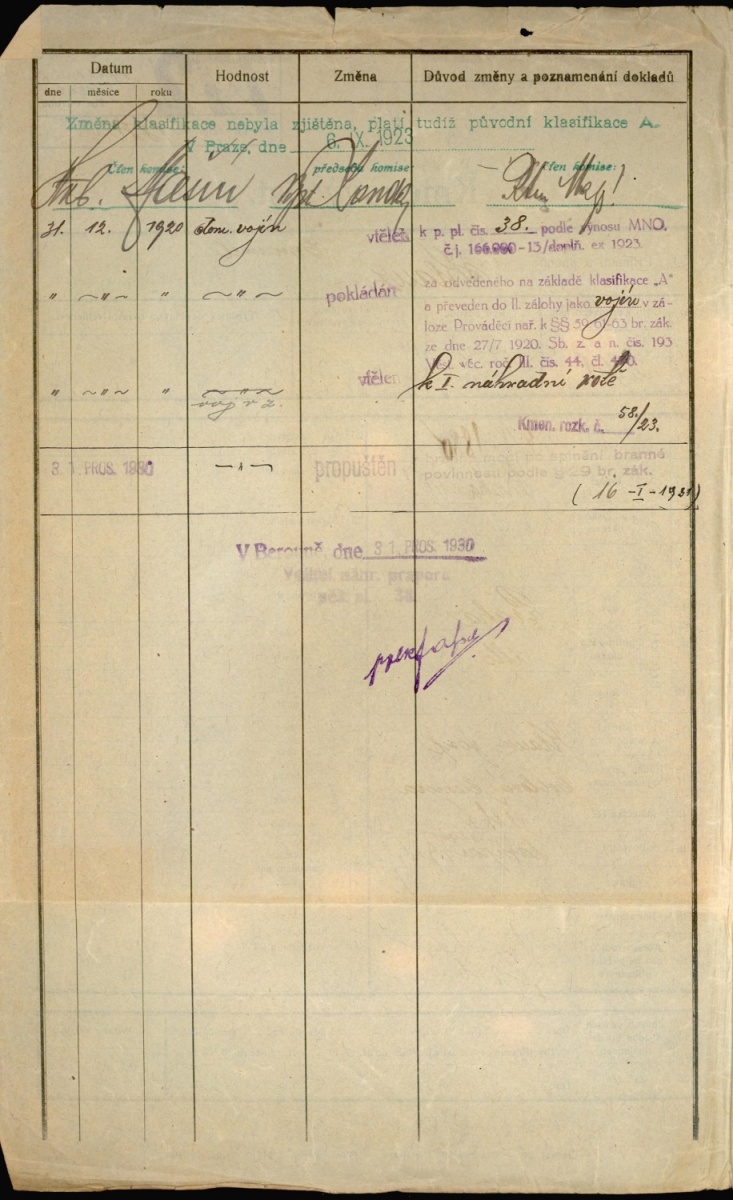 Datum
Hodnost
Změna
Důvod změny a poznamenání dokladů
dne
měsíce
roku
Změna klasifikace nebyla zjištěna, platí tudíž původní klasifikace A.
V Praze, dne 6. IX. 1923
Člen komise:
předseda komise:
Člen komise:
31. 12. 1920 dom. vojín vtělen k p. pl. čís. 38. podle výnosu MNO.
č. j. -13/doplň. ex 1923.
" " " " pokládán za odvedeného na základě klasifikace „A"
a převeden do II. zálohy jako vojín v zá-
loze Prováděcí nař. k §§ 59-61-63 br. zák.
ze dne 27/7 1920. Sb. z. a n. čís. 193
Věst. věc. roč. III. čís. 44, čl.
" " " " vtělen k I. náhradní rotě
voj. v z.
Kmen. rozk. č. 58./23.
31. PROS. 1930 -"- propuštěn po splnění branné
povinnosti podle § 29 br. zák.
(16-I-1931)
V Berouně, dne 31. PROS. 1930
Velitel náhr. praporu
pěš. pl. 38.